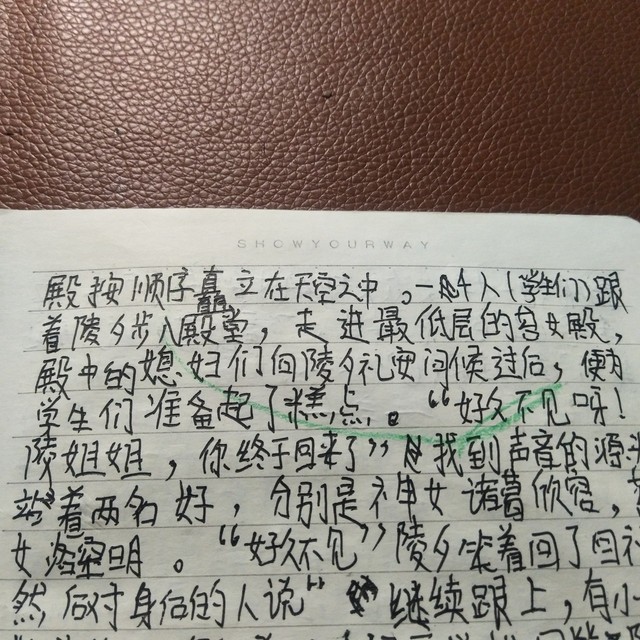 SHOWYOURWAY
殿按顺序矗立在天空之中。一众人(学生们)跟
着陵夕步入殿堂,走进最低层的茗女殿,
殿中的媳妇们向陵夕礼安问候过后,便为
学生们准备起了糕点。“好久不见呀!
陵姐姐,你终于回来了”找到声音的源头
站着两名好,分别是神女诸葛欣容,
女洛空明。“好久不见”陵夕笑着回了回礼
然后对身后的人说“继续跟上,有小